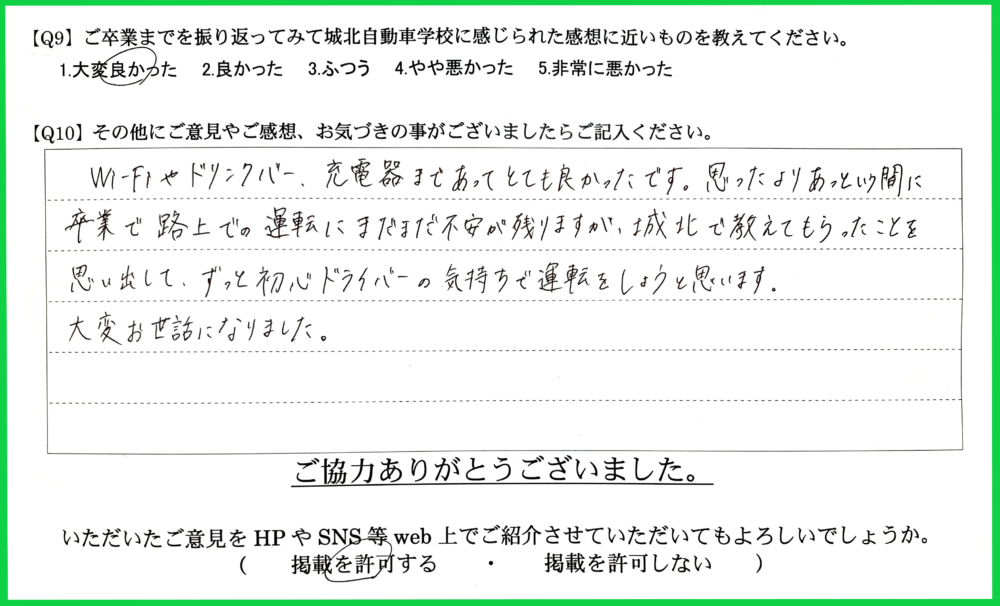 【Q9】ご卒業までを振り返ってみて城北自動車学校に感じられた感想に近いものを教えてください。
1.大変良かった 2.良かった 3.ふつう 4.やや悪かった 5.非常に悪かった
【Q10】その他にご意見やご感想、お気づきの事がございましたらご記入ください。
Wi-Fiやドリンクバー、充電器まであってとても良かったです。思ったよりあっという間に
卒業で路上での運転にまだまだ不安が残りますが、城北で教えてもらったことを
思い出して、ずっと初心ドライバーの気持ちで運転をしようと思います。
大変お世話になりました。
ご協力ありがとうございました。
いただいたご意見をHPやSNS等web上でご紹介させていただいてもよろしいでしょうか。
( 掲載を許可する ・ 掲載を許可しない )